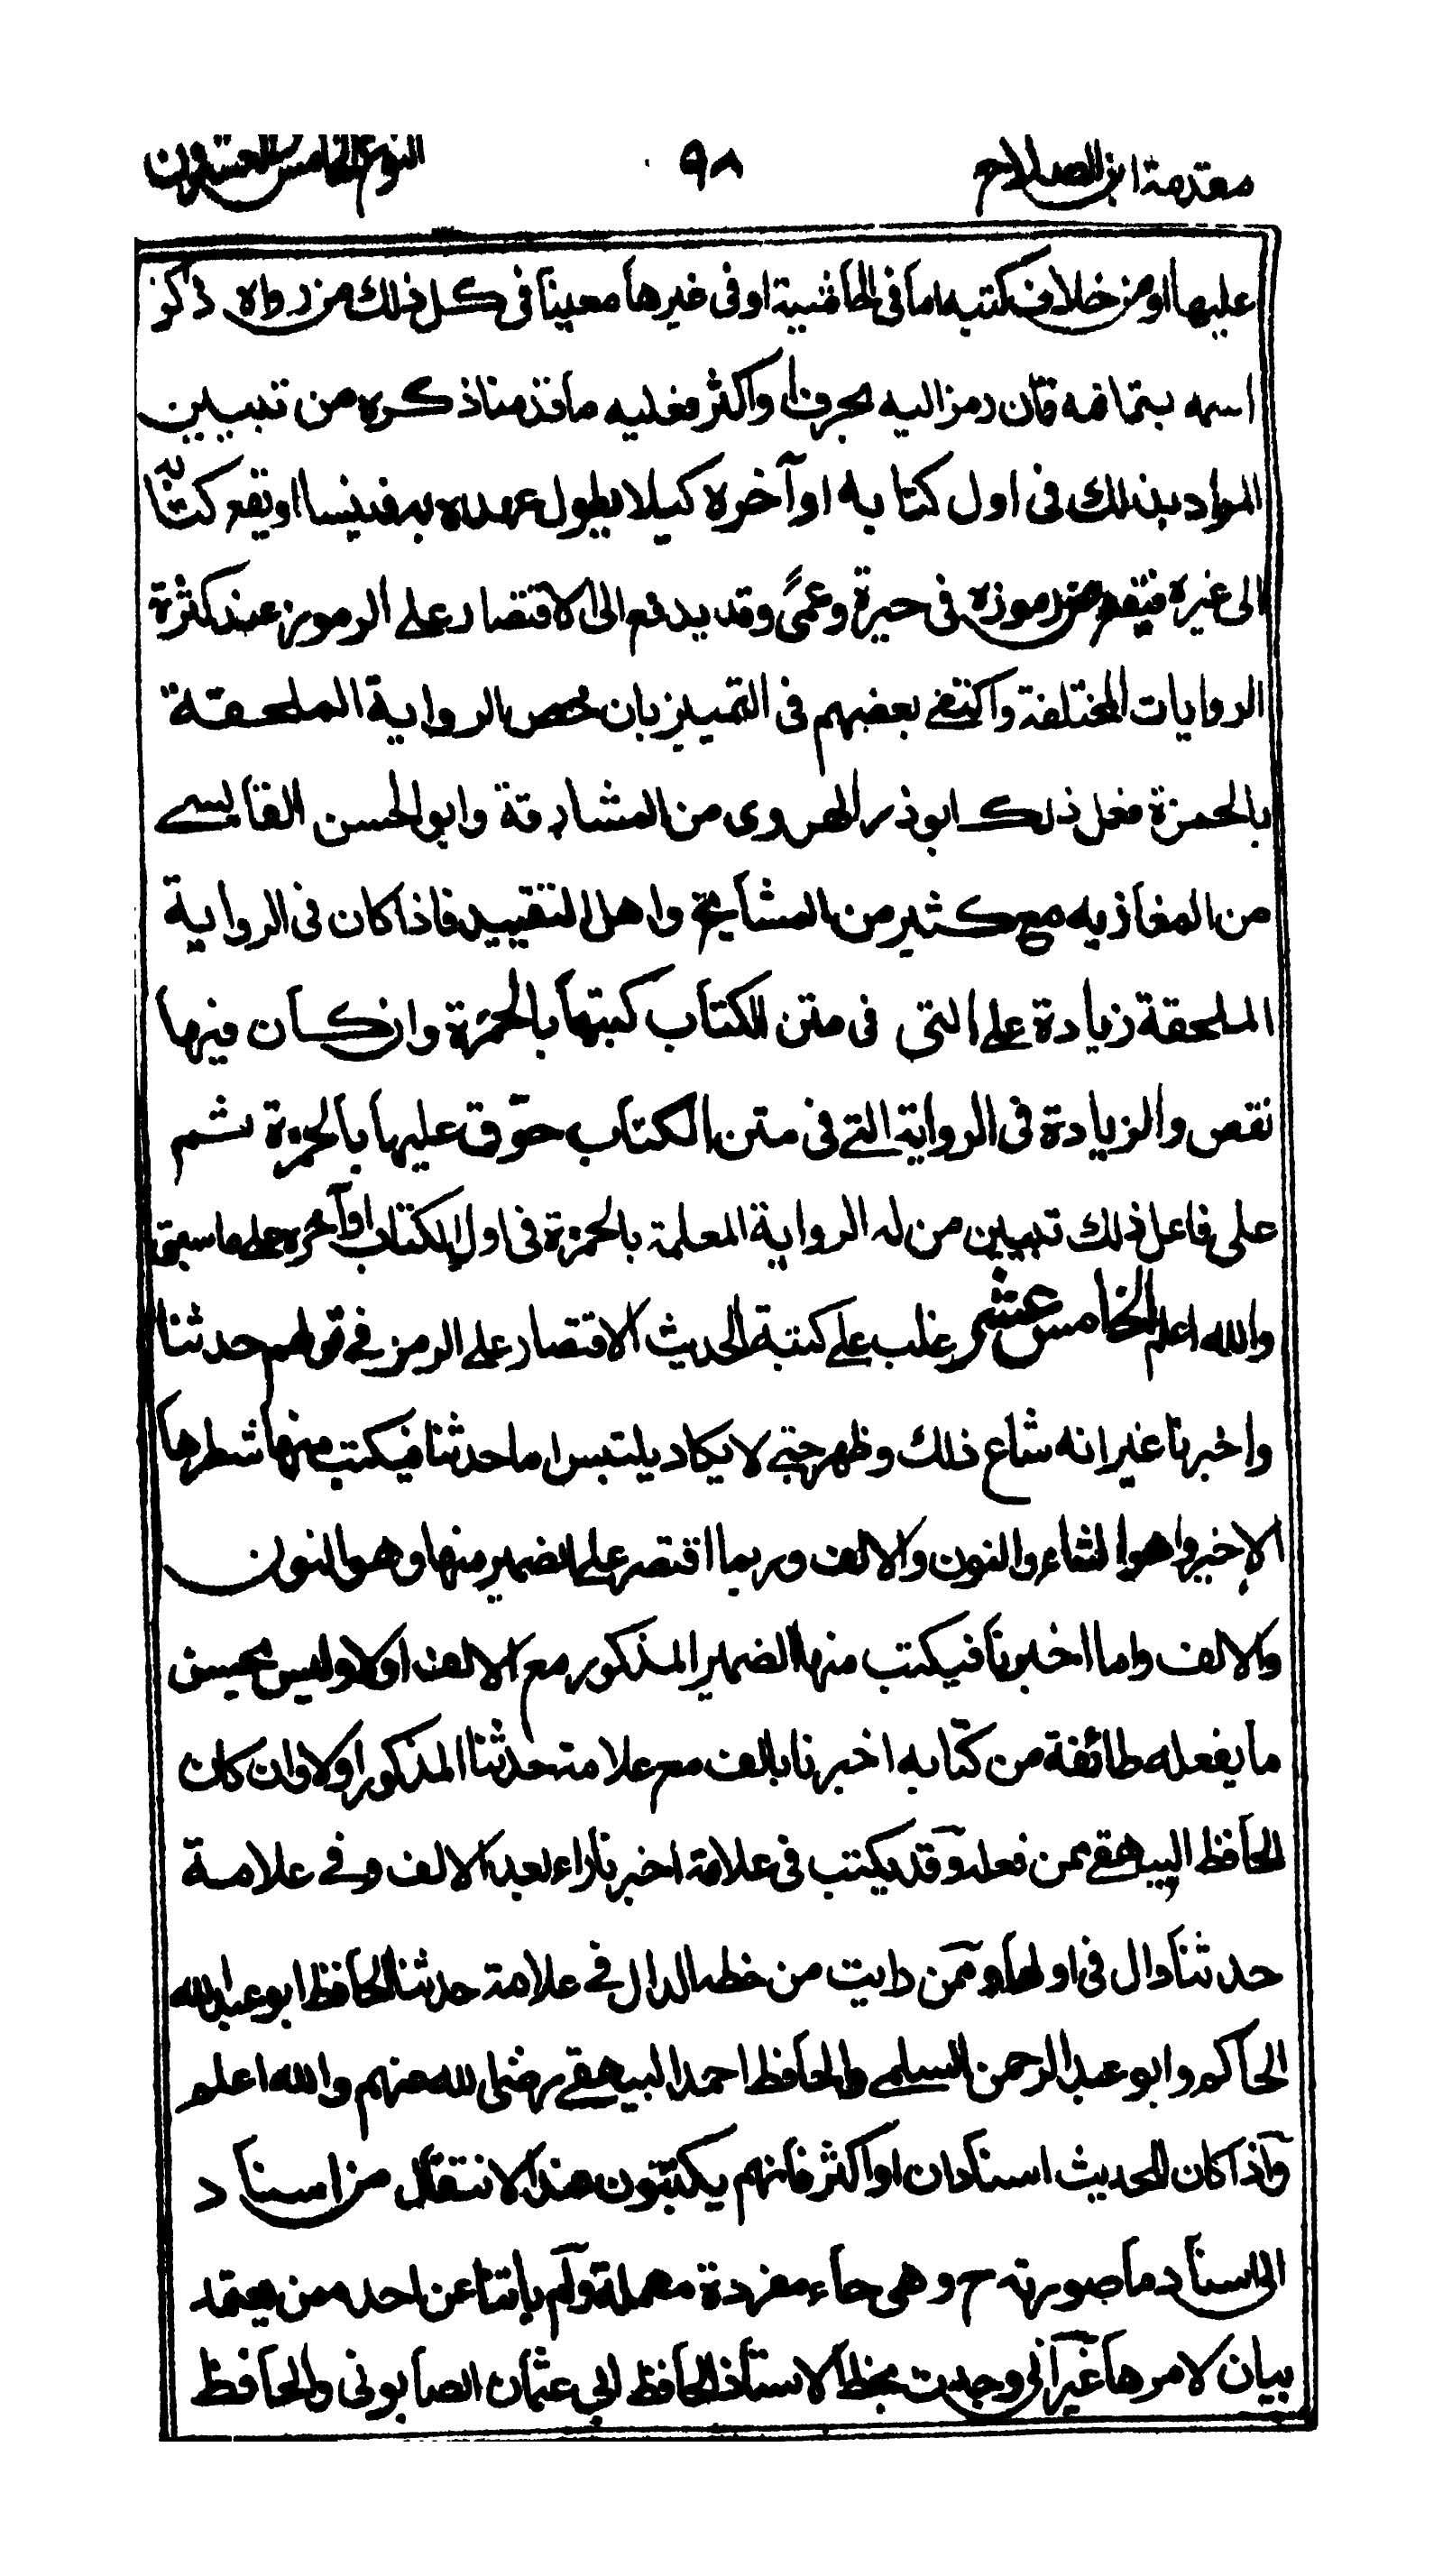 مقدمة ابن الصلاح ٩٨ النوع الخامس والعشرون
عليها او من خلاف كتبه اما في الحاشية او في غيرها معينا في كل ذلك من رواه ذاكرا
اسمه بتمامه فان رمز اليه بحرف او اكثر فعليه ما قدمنا ذكره من تبيين
المراد بذلك في اول كتابه او آخره كيلا يطول عهده به فينسا او يقع كتابه
الى غيره فيقع من رموزه في حيرة وعمًى وقد يدفع الى الاقتصار على الرموز عند كثرة
الروايات المختلفة واكتفى بعضهم في التمييز بان خص الرواية الملحقة
بالحمزة فعل ذلك ابو ذر الهروى من المشارقة وابو الحسن القابسے
من المغاربه مع كثير من المشايخ واهل التقييد فاذا كان في الرواية
الملحقة زيادة على التى في متن الكتاب كتبها بالحمرة وان كان فيها
نقص والزيادة في الرواية التے في متن الكتاب حوّق عليها بالحمرة ثم
على فاعل ذلك تبيين من له الرواية المعلمة بالحمرة في اول الكتاب او آخره على ما سبق
والله اعلم الخامس عشر غلب على كتبة الحديث الاقتصار على الرمز في قولهم حدثنا
واخبرنا غير انه شاع ذلك وظهر حتے لا يكاد يلتبس اما حدثنا فيكتب منها شطرها
الاخير واهو الثاء والنون والالف وربما اقتصر على الضمير منها وهو النون
والالف واما اخبرنا فيكتب منها الضمير المذكور مع الالف اولا وليس بحسن
ما يفعله طائفة من كتابه اخبرنا بالف مع علامة حدثنا المذكور اولا وان كان
الحافظ البيهقے ممن فعله وقد يكتب في علامة اخبرنا راء بعد الالف وفے علامة
حدثنا دال في اولها وممن رايت من خطه الدال فے علامة حدثنا الحافظ ابو عبدالله
الحاكم وابو عبد الرحمن السلمے والحافظ احمد البيهقے رضى الله عنهم والله اعلم
واذا كان للحديث اسنادان او اكثر فانهم يكتبون عند الانتقال من اسناد
الى اسناد ما صورته ح وهى حاء مفردة مهملة ولم ياتنا عن احد ممن يعتمد
بيان لامرها غير انى وجدت بخط الاستاذ الحافظ ابي عثمان الصابونى والحافظ